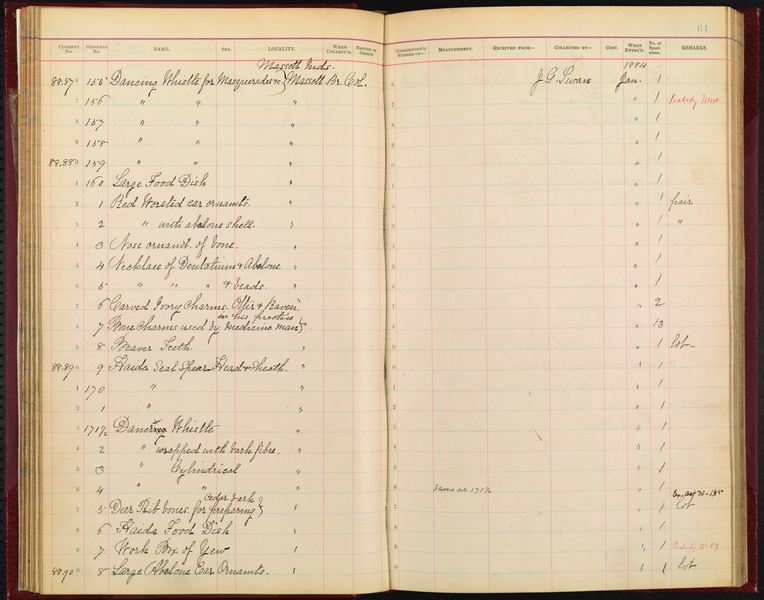 64
CURRENT No. ORIGINAL No. NAME. SEX. LOCALITY. WHEN COLLECT'D. NATURE OF OBJECT. CORRESPOND'G NUMBER OF— MEASUREMENT. RECEIVED FROM— COLLECTED BY— COST. WHEN ENTER'D. No. of Speci-mens. REMARKS.
Massett Inds. 1884
88.87 6 155 Dancing Whistle for Masquerades &c } Massett Br. Col. 6 J G. Swan Jan. 1
7 156 " " " 7 " 1 Peabody Mus
8 157 " " " 8 " 1
9 158 " " " 9 " 1
88.88 0 159 " " " 0 " 1
1 160 Large Food Dish " 1 " 1
2 1 Red Worsted ear ornamts. " 2 " 1 pair
3 2 " with abalone shell. " 3 " 1 "
4 3 Nose ornamt. of bone. " 4 " 1
5 4 Necklace of Dentatium & Abalone. " 5 " 1
6 5 " " " & beads. " 6 " 1
7 6 Carved Ivory Charms. Otter & Raven. " 7 " 2
in his practice
8 7 Bone Charms used by medicine man } " 8 " 13
9 8 Beaver Teeth. " 9 " 1 lot-
88.89 0 9 Haida Seal Spear Head & Sheath. " 0 " 1
1 170 " " 1 " 1
2 1 " " 2 " 1
3 171½ Dancing Whistle " 3 " 1
4 2 " wrapped with bark fibre. " 4 " 1
5 3 " Cylindrical " 5 " 1
6 4 " " " 6 Same as 171½ " 1
Cedar bark
7 5 Deer Rib bones for preparing } " 7 " 1 lot
8 6 Haida Food Dish " 8 " 1
9 7 Work Box of Yew " 9 " 1
88.90 0 8 Large Abalone Ear Ornamts. " 0 " 1 lot